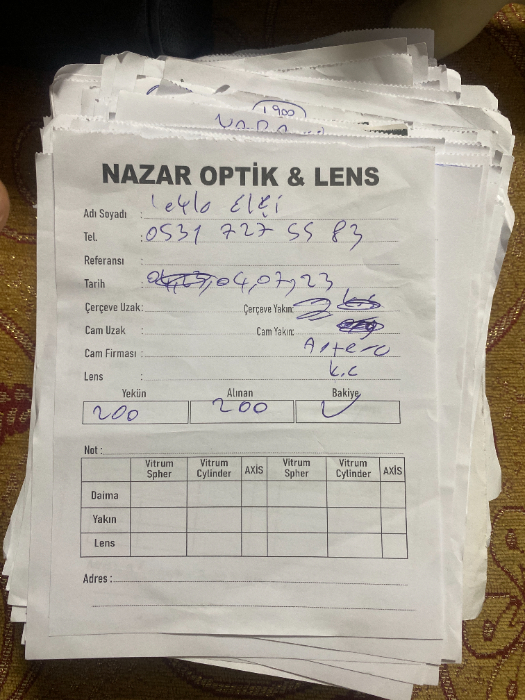 1900
NAZAR OPTİK & LENS
Adı Soyadı : Leyla Elçi
Tel. : 0531 727 55 83
Referansı :
Tarih : 04,07,23
Çerçeve Uzak: Çerçeve Yakın:
Cam Uzak : Cam Yakın:
Cam Firması : Artero
Lens : k.c
Yekün Alınan Bakiye
200 200
Not :
Vitrum Spher Vitrum Cylinder AXİS Vitrum Spher Vitrum Cylinder AXİS
Daima
Yakın
Lens
Adres :